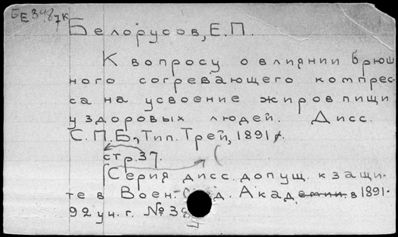 БЕ 348/7к
Белорусов, Е.П.
К вопросу о влиянии брюш
ного согревающего компрес-
са на усвоение жиров пищи
у здоровых людей. Дисс.
С.П.Б., Тип. Трей, 1891 г.
стр. 37.
(Серия дисс. допущ. к защи-
те в Воен. Акад в 1891-
92 уч. г. № 38